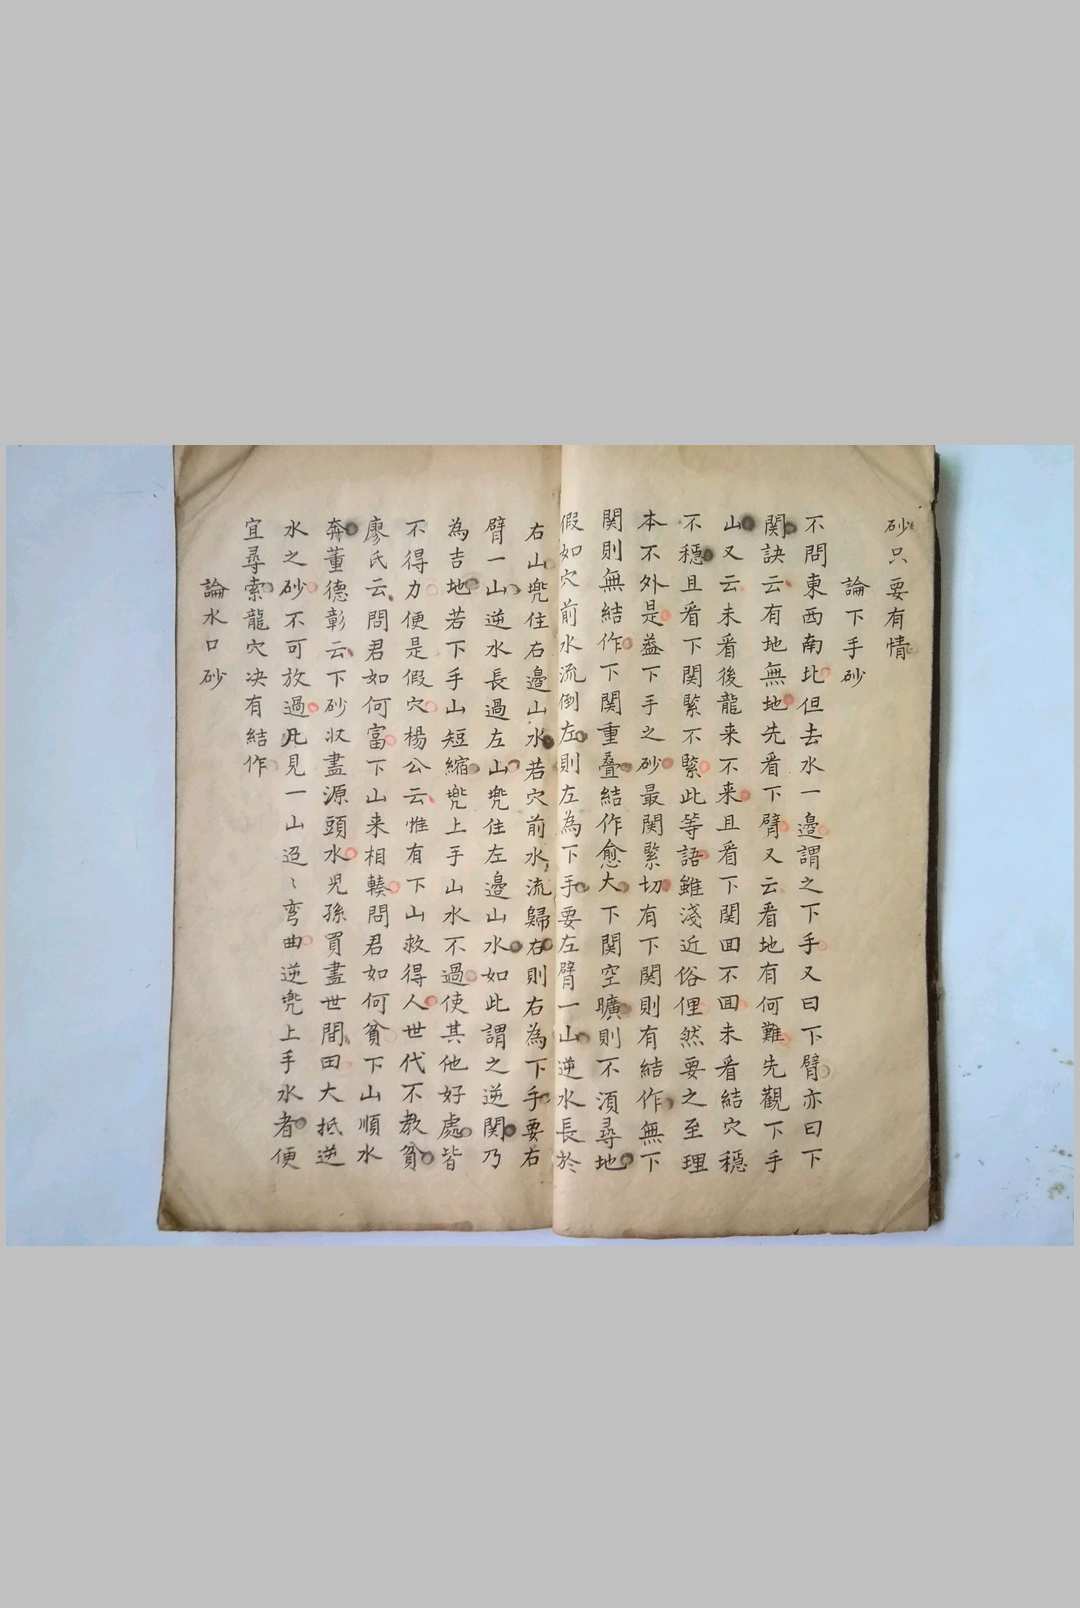 砂只要有情
論下手砂
不問東西南北但去水一邊謂之下手又曰下臂亦曰下
関訣云有地無地先看下臂又云看地有何難先觀下手
山又云未看後龍来不来且看下関回不回未看結穴穩
不穩且看下関緊不緊此等語雖淺近俗俚然要之至理
本不外是盖下手之砂最関緊切有下関則有結作無下
関則無結作下関重叠結作愈大下関空曠則不須尋地
假如穴前水流倒左則左為下手要左臂一山逆水長於
右山兠住右邊山水若穴前水流歸右則右為下手要右
臂一山逆水長過左山兠住左邊山水如此謂之逆関乃
為吉地若下手山短縮兠上手山水不過使其他好處皆
不得力便是假穴楊公云惟有下山救得人世代不教貧
廖氏云問君如何富下山来相輳問君如何貧下山順水
奔董德彰云下砂収盡源頭水児孫買盡世間田大抵逆
水之砂不可放過凡見一山迢〻弯曲逆兠上手水者便
宜尋索龍穴决有結作
論水口砂